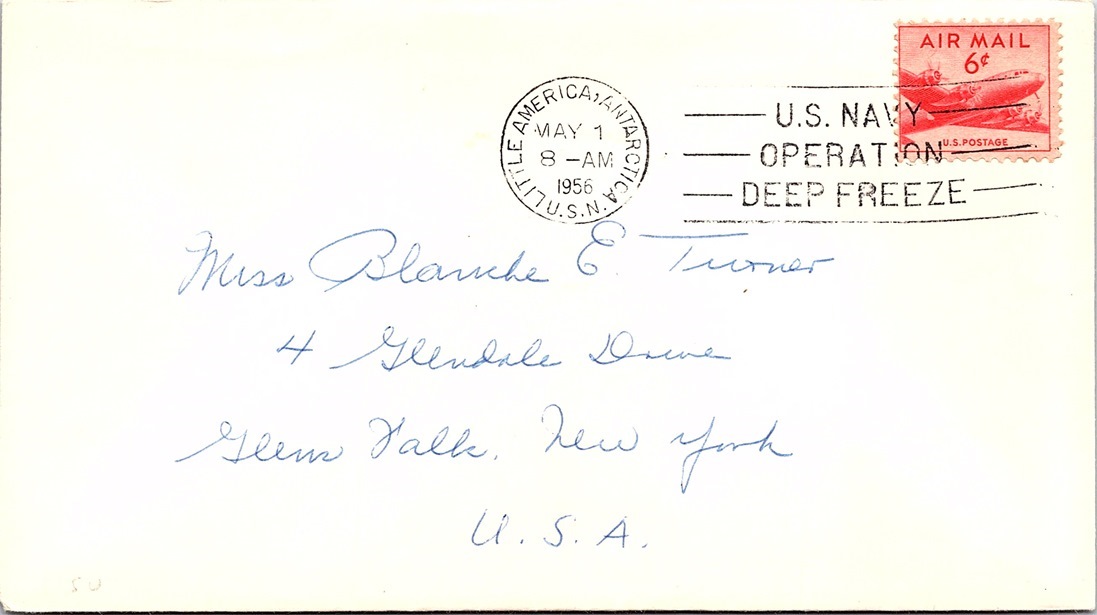 AIR MAIL
6¢
U.S. POSTAGE
LITTLE AMERICA, ANTARCTICA U.S.N.
MAY 1
8 -AM
1956
U.S. NAVY
OPERATION
DEEP FREEZE
Miss Blanche E. Turner
4 Glendale Drive
Glens Falls, New York
U.S.A.
SU